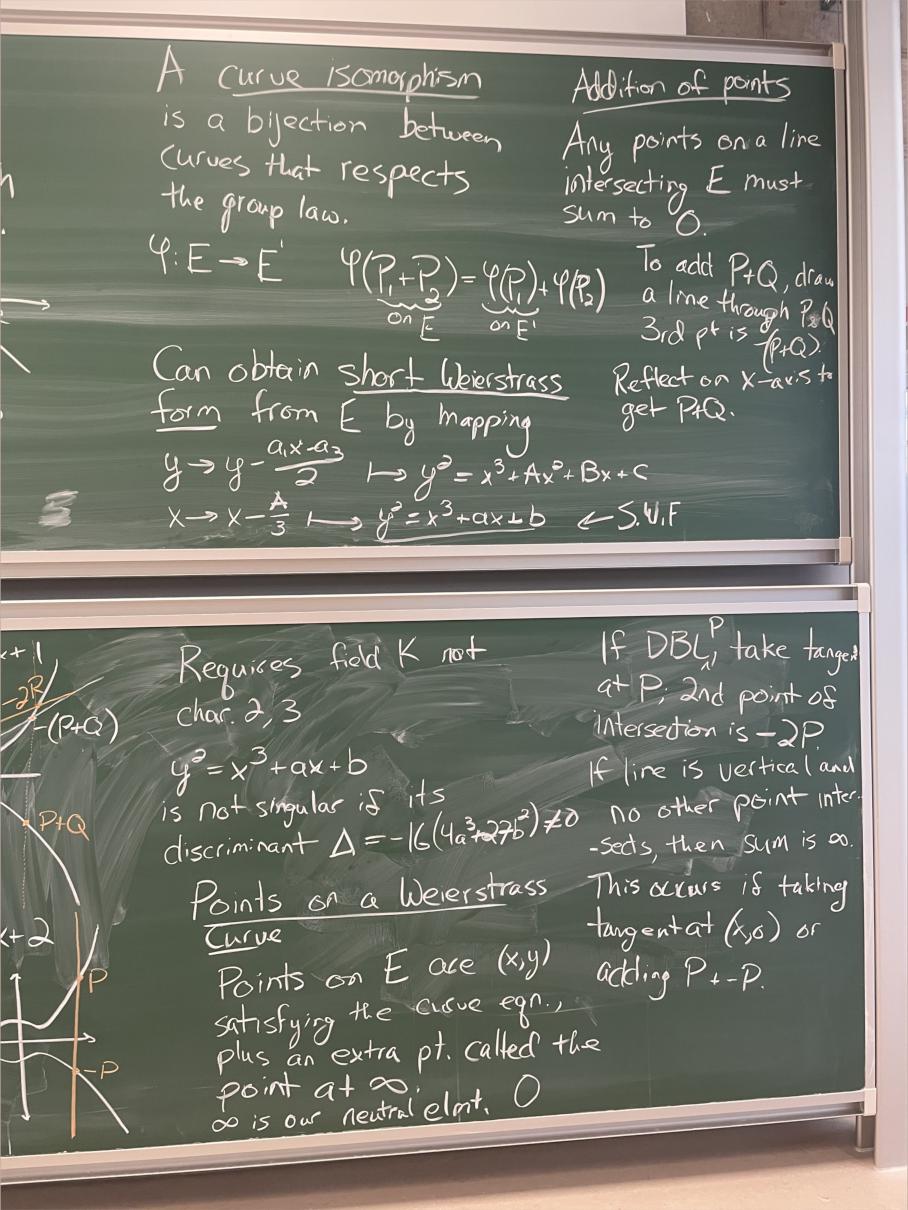 A curve isomorphism
is a bijection between
curves that respects
the group law.
φ: E → E' φ(P₁+P₂) = φ(P₁) + φ(P₂)
on E on E'
Can obtain short Weierstrass
form from E by mapping
y → y - (a₁x-a₃)/2 ↦ y² = x³ + Ax² + Bx + C
x → x - A/3 ⟼ y² = x³ + ax + b ← S.W.F
Addition of points
Any points on a line
intersecting E must
sum to O.
To add P+Q, draw
a line through P&Q
3rd pt is -(P+Q).
Reflect on x-axis to
get P+Q.
x+1
-2R
-(P+Q)
P+Q
x+2
P
-P
Requires field K not
char. 2, 3
y² = x³ + ax + b
is not singular if its
discriminant Δ = -16(4a³+27b²) ≠ 0
Points on a Weierstrass
Curve
Points on E are (x,y)
satisfying the curve eqn.,
plus an extra pt. called the
point at ∞.
∞ is our neutral elmt. O
If DBL P, take tangent
at P; 2nd point of
intersection is -2P.
If line is vertical and
no other point inter-
-sects, then sum is ∞.
This occurs if taking
tangent at (x,0) or
adding P + -P.